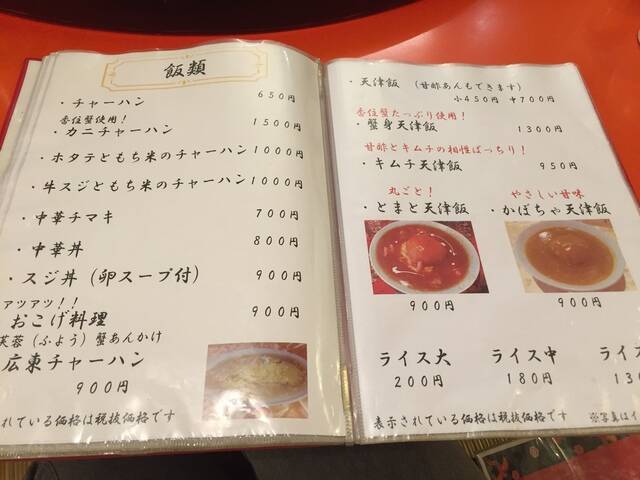 飯類
・チャーハン 650円
香住蟹使用!
・カニチャーハン 1500円
・ホタテともち米のチャーハン 1000円
・牛スジともち米のチャーハン 1000円
・中華チマキ 700円
・中華丼 800円
・スジ丼(卵スープ付) 900円
アツアツ!!
おこげ料理 900円
芙蓉(ふよう)蟹あんかけ
広東チャーハン
900円
れている価格は税抜価格です
・天津飯(甘酢あんもできます)
小450円 中700円
香住蟹たっぷり使用!
・蟹身天津飯 1300円
甘酢とキムチの相性ばっちり!
・キムチ天津飯 950円
丸ごと!
・とまと天津飯
900円
やさしい甘味
・かぼちゃ天津飯
900円
ライス大 ライス中 ライス
200円 180円 130
表示されている価格は税抜価格です ※写真はイ